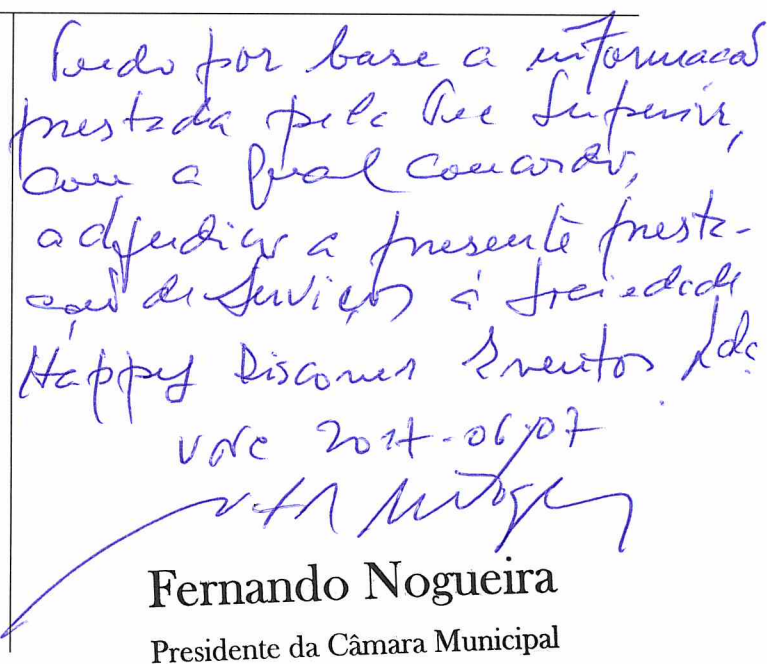 Tendo por base a informação
prestada pela Tec Superior,
com a qual concordo,
adjudico a presente presta-
ção de Serviços à Sociedade
Happy Discover Eventos Lda
VNC 2017-06-07
Fernando Nogueira
Presidente da Câmara Municipal